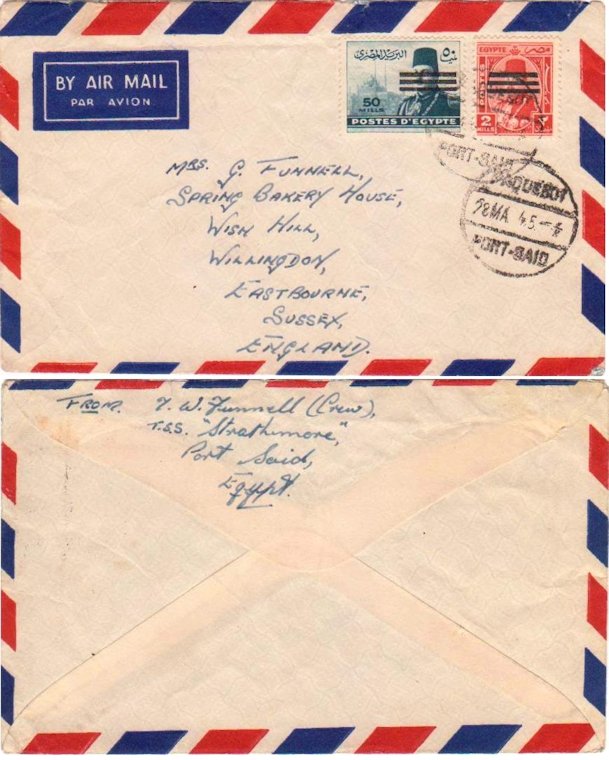 BY AIR MAIL
PAR AVION
البريد المصرى
٥٠
50
MILLS
POSTES D'EGYPTE
EGYPTE
مصر
POSTES
2
MILLS
٢
PORT-SAID
PAQUEBOT
28MA 45
PORT-SAID
MRS. G. FUNNELL,
SPRING BAKERY HOUSE,
WISH HILL,
WILLINGDON,
EASTBOURNE,
SUSSEX,
ENGLAND.
FROM. T. W. Funnell (Crew),
T.S.S. "Strathmore",
Port Said,
Egypt.